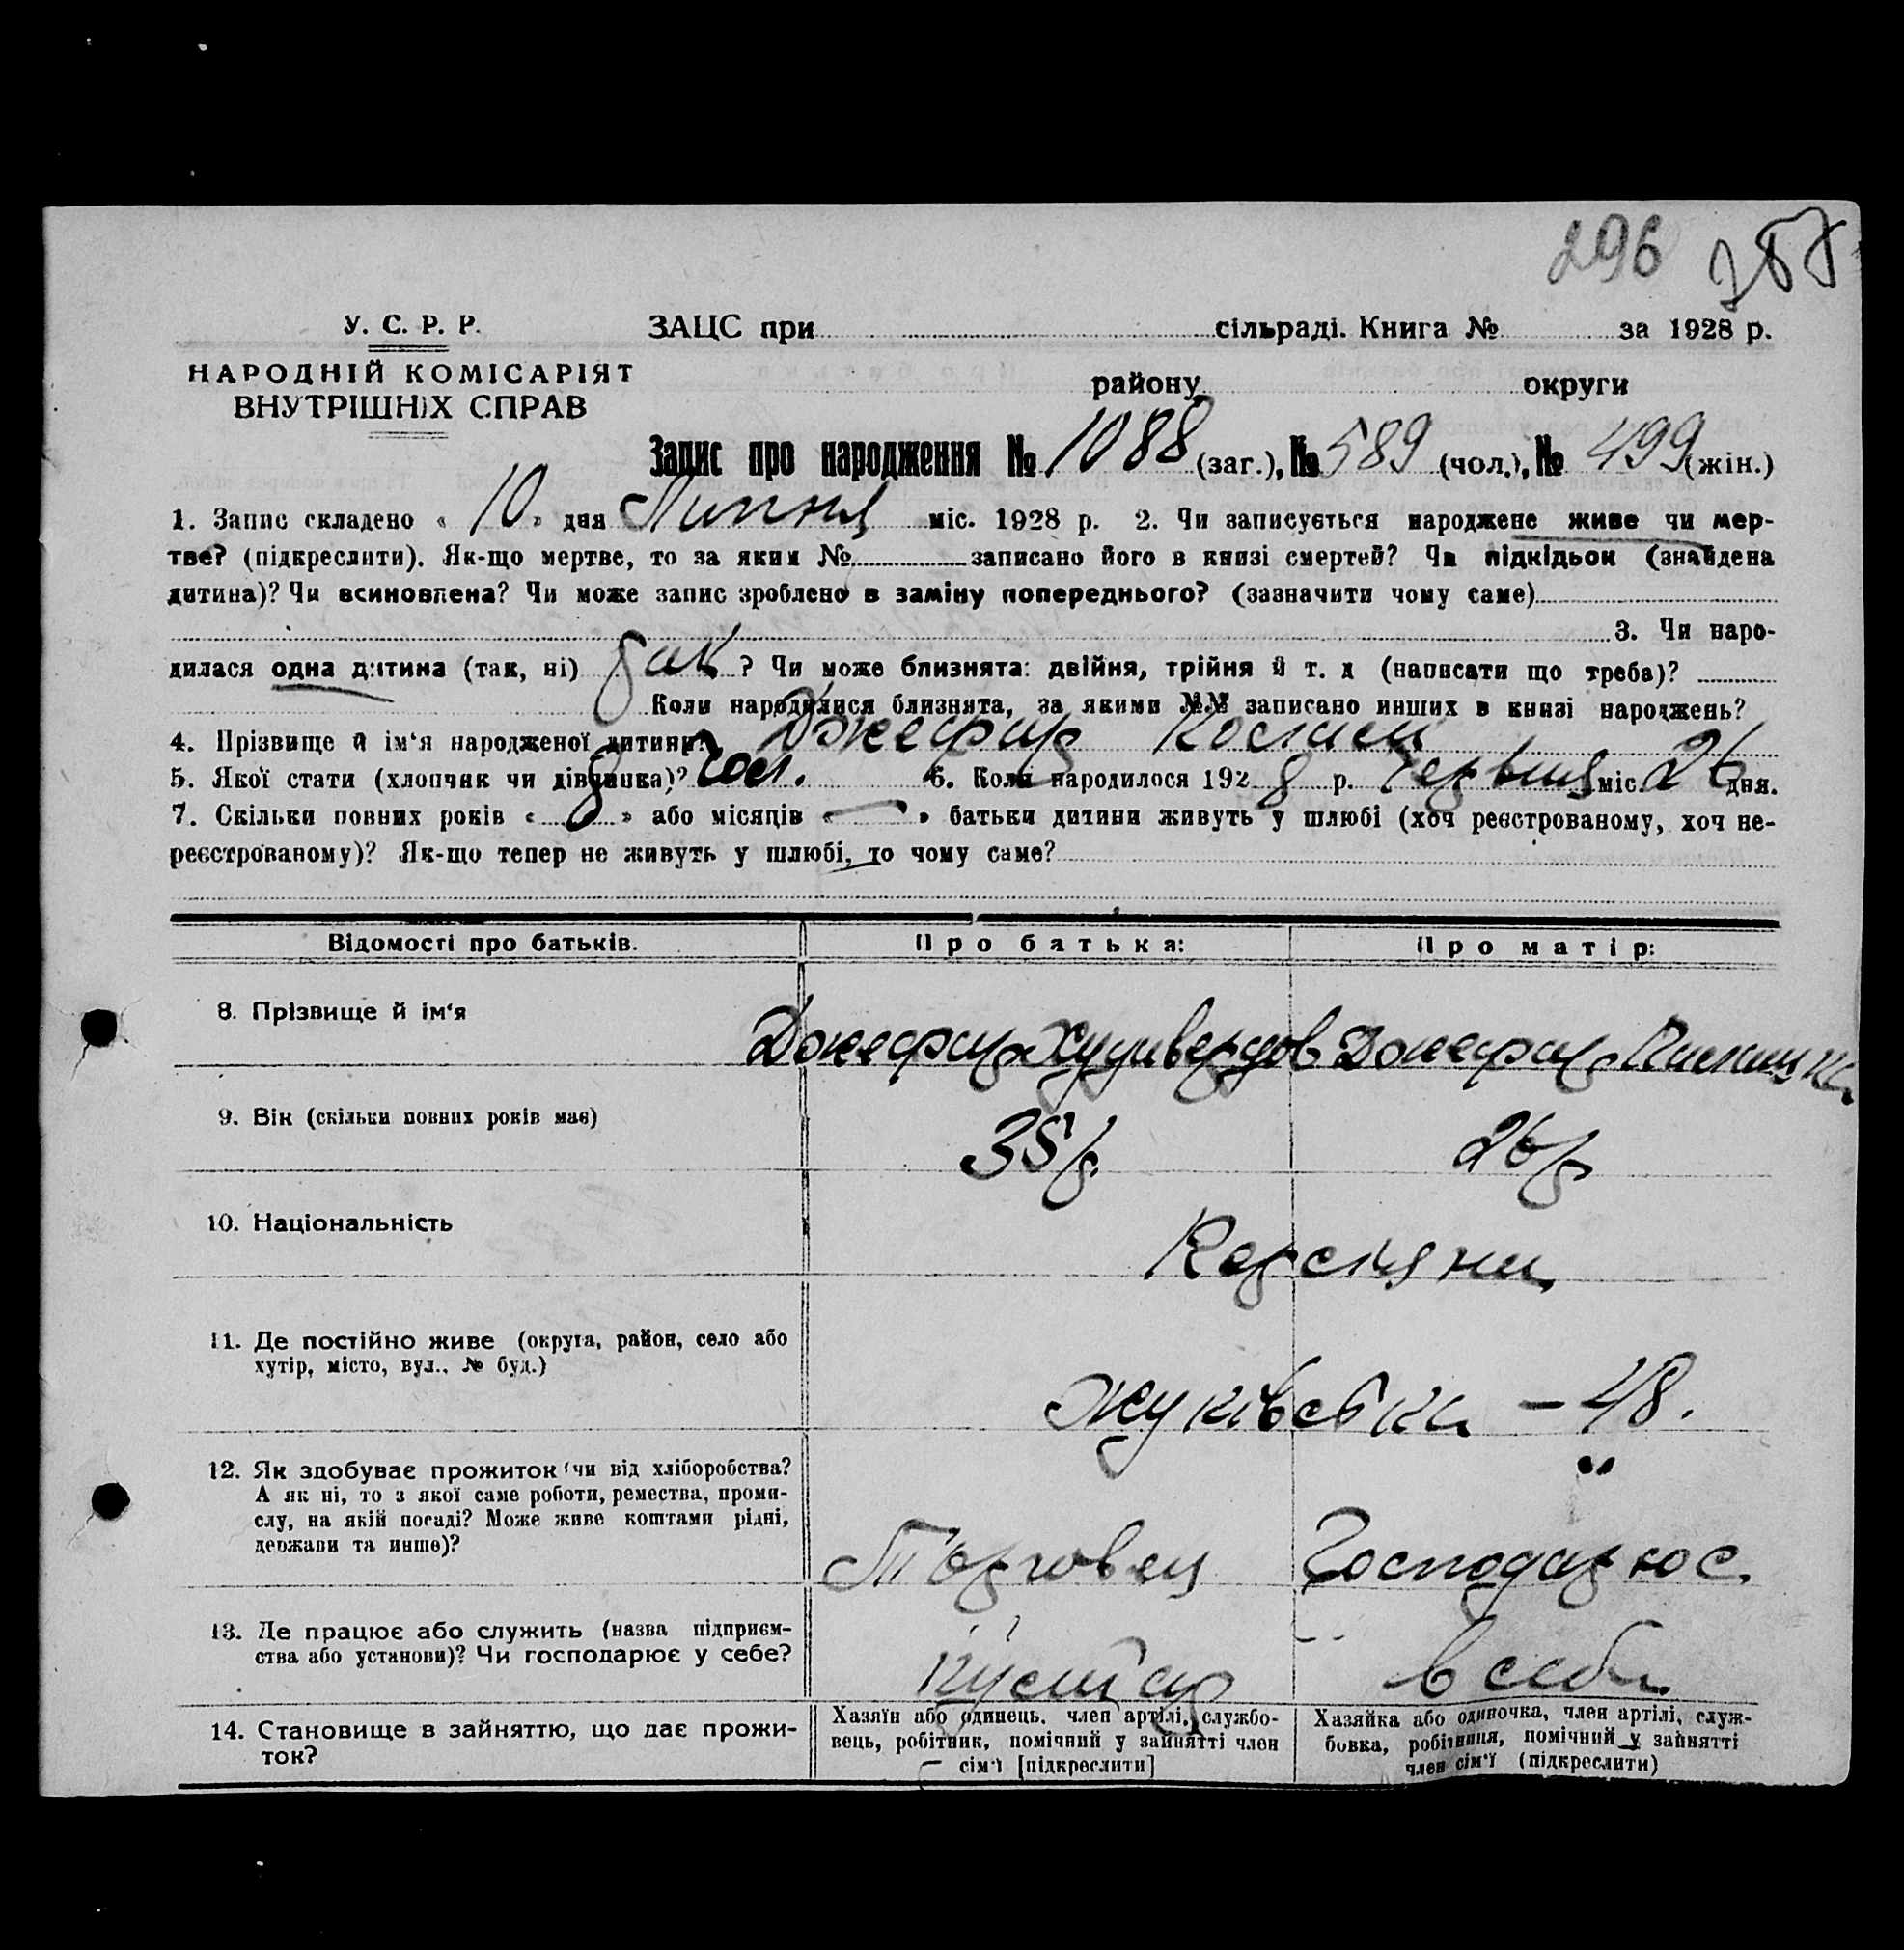 296
У. С. Р. Р.
ЗАЦС при сільраді. Книга № за 1928 р.
НАРОДНІЙ КОМІСАРІЯТ
ВНУТРІШНІХ СПРАВ
району округи
Запис про народження № 1088 (заг.), № 589 (чол.), № 499 (жін.)
1. Запис складено « 10 » дня Липня міс. 1928 р. 2. Чи записується народжене живе чи мер-
тве? (підкреслити). Як-що мертве, то за яким № записано його в книзі смертей? Чи підкідьок (знайдена
дитина)? Чи всиновлена? Чи може запис зроблено в заміну попереднього? (зазначити чому саме)
3. Чи наро-
дилася одна дитина (так, ні) так ? Чи може близнята: двійня, трійня й т. д (написати що треба)?
Коли народилися близнята, за якими №№ записано инших в книзі народжень?
4. Прізвище й ім'я народженої дитини? Джефар
5. Якої стати (хлопчик чи дівчинка)? Чол. 6. Коли народилося 1928 р. Червня міс. 26 дня.
7. Скільки повних років « » або місяців « — » батьки дитини живуть у шлюбі (хоч реєстрованому, хоч не-
реєстрованому)? Як-що тепер не живуть у шлюбі, то чому саме?
Відомості про батьків. Про батька: Про матір:
8. Прізвище й ім'я Джефар Худивердов Джефар
9. Вік (скільки повних років має) 35 р. 26 р
10. Національність Персияни
11. Де постійно живе (округа, район, село або
хутір, місто, вул., № буд.)
Жуківська – 48.
12. Як здобуває прожиток (чи від хліборобства?
А як ні, то з якої саме роботи, ремества, проми-
слу, на якій посаді? Може живе коштами рідні,
держави та инше)?
Торговец Господарює.
13. Де працює або служить (назва підприєм-
ства або установи)? Чи господарює у себе?
Кустар в себе
14. Становище в зайняттю, що дає прожи-
ток?
Хазяїн або одинець, член артілі, службо-
вець, робітник, помічний у зайнятті член
сім'ї [підкреслити]
Хазяйка або одиночка, член артілі, служ-
бовка, робітниця, помічний у зайнятті
член сім'ї (підкреслити)